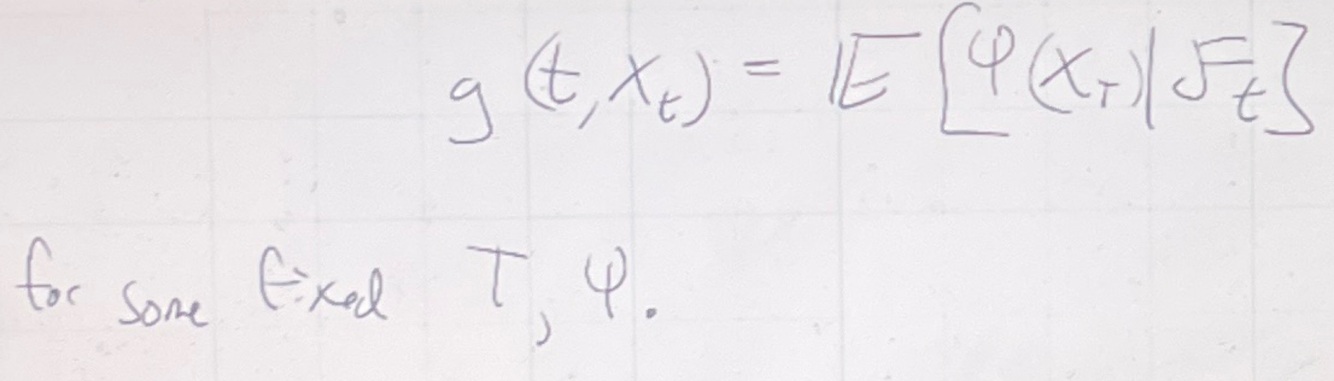 g(t, X_t) = 𝔼[φ(X_T)|ℱ_t]
for some fixed T, φ.